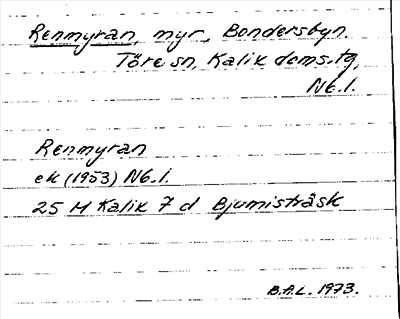 Renmyran, myr, Bondersbyn,
Töre sn, Kalix doms.tg,
Nb.l.
Renmyran
ek (1953) Nb.l.
25 M Kalix 7 d Bjumisträsk
B.A.L. 1973.